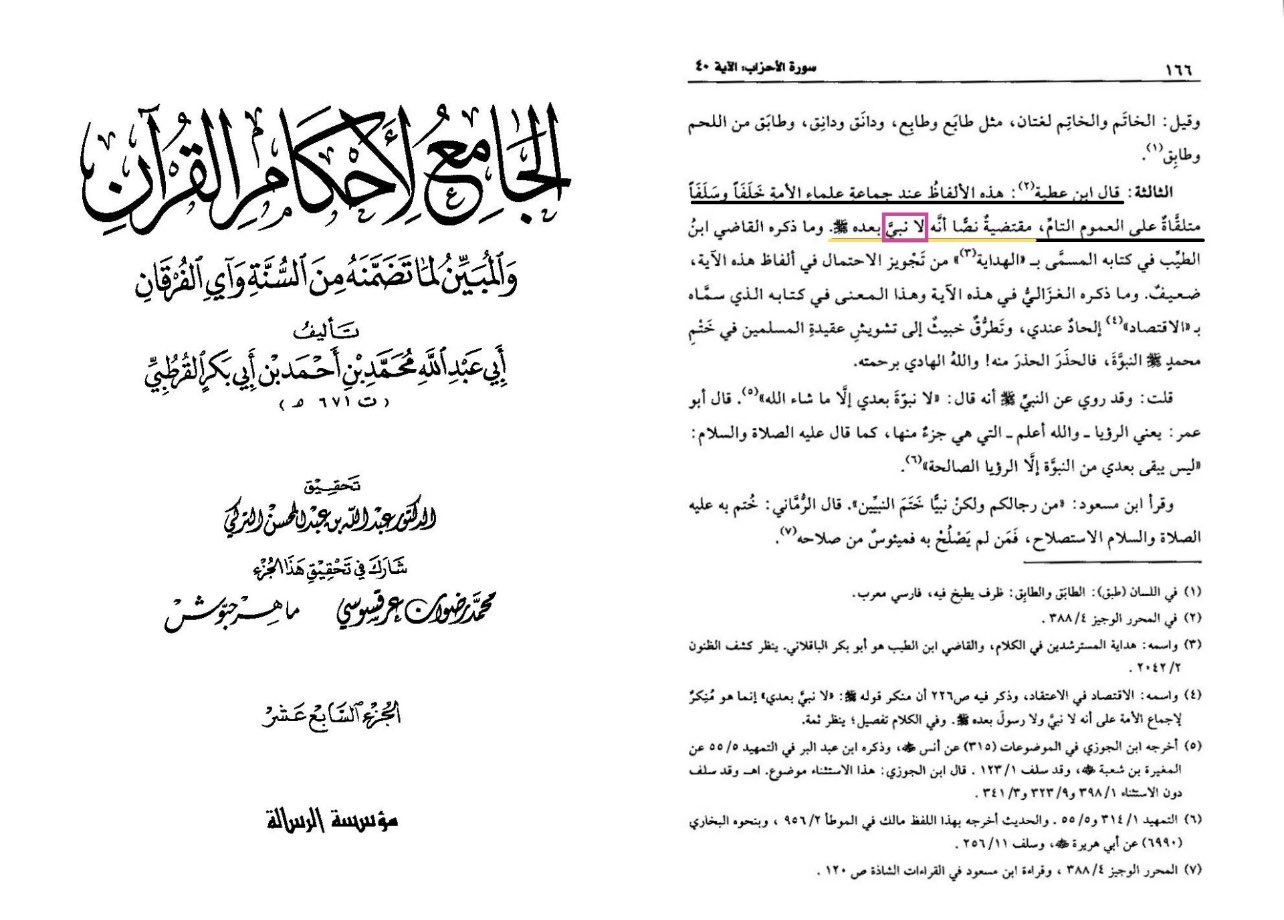 الجَامِعُ لِأَحْكَامِ القُرْآنِ
وَالمُبَيِّنُ لِمَا تَضَمَّنَهُ مِنَ السُّنَّةِ وَآيِ الفُرْقَانِ
تَأليفُ
أَبِي عَبْدِ اللَّهِ مُحَمَّدِ بْنِ أَحْمَدَ بْنِ أَبِي بَكْرٍ القُرْطُبِيِّ
(ت ٦٧١ هـ)
تَحقِيق
الدكتور عبد الله بن عبد المحسن التركي
شَارَكَ فِي تَحْقِيقِ هَذَا الجُزْءِ
محمَّد رضوان عرقسوسي ماهر حبّوش
الجُزْءُ السَّابِعَ عَشَر
مؤسسة الرسالة
سورة الأحزاب: الآية ٤٠
١٦٦
وقيل: الخاتَم والخاتِم لغتان، مثل طابَع وطابِع، ودانَق ودانِق، وطابَق من اللحم
وطابِق(١).
الثالثة: قال ابن عطية(٢): هذه الألفاظُ عند جماعة علماء الأمة خَلَفَاً وسَلَفَاً
متلقَّاةٌ على العموم التامِّ، مقتضيةٌ نصًّا أنَّه لا نبيَّ بعده ﷺ. وما ذكره القاضي ابنُ
الطيِّب في كتابه المسمَّى بـ «الهداية(٣)» من تَجْويز الاحتمال في ألفاظ هذه الآية،
ضعيفٌ. وما ذكره الغزاليُّ في هذه الآية وهذا المعنى في كتابه الذي سمَّاه
بـ «الاقتصاد»(٤) إلحادٌ عندي، وتَطرُّقٌ خبيثٌ إلى تشويش عقيدةِ المسلمين في خَتْمِ
محمدٍ ﷺ النبوَّةَ، فالحذَرَ الحذرَ منه! واللهُ الهادي برحمته.
قلت: وقد روي عن النبيِّ ﷺ أنه قال: «لا نبوّةَ بعدي إلَّا ما شاء الله»(٥). قال أبو
عمر: يعني الرؤيا ـ والله أعلم ـ التي هي جزءٌ منها، كما قال عليه الصلاة والسلام:
«ليس يبقى بعدي من النبوَّة إلَّا الرؤيا الصالحة»(٦).
وقرأ ابن مسعود: «من رجالكم ولكنْ نبيًّا خَتَمَ النبيِّين». قال الرُّمَّاني: خُتم به عليه
الصلاة والسلام الاستصلاح، فَمَن لم يَصْلُحْ به فميئوسٌ من صلاحه(٧).
(١) في اللسان (طبق): الطابَق والطابِق: ظرف يطبخ فيه، فارسي معرب.
(٢) في المحرر الوجيز ٤/ ٣٨٨ .
(٣) واسمه: هداية المسترشدين في الكلام، والقاضي ابن الطيب هو أبو بكر الباقلاني. ينظر كشف الظنون
٢/ ٢٠٤٢ .
(٤) واسمه: الاقتصاد في الاعتقاد، وذكر فيه ص٢٢٦ أن منكر قوله ﷺ: «لا نبيَّ بعدي» إنما هو مُنِكرٌ
لإجماع الأمة على أنه لا نبيَّ ولا رسولَ بعده ﷺ. وفي الكلام تفصيل؛ ينظر ثمة.
(٥) أخرجه ابن الجوزي في الموضوعات (٣١٥) عن أنس ﷺ، وذكره ابن عبد البر في التمهيد ٥/ ٥٥ عن
المغيرة بن شعبة ﷺ، وقد سلف ١/ ١٢٣ . قال ابن الجوزي: هذا الاستثناء موضوع. اهـ وقد سلف
دون الاستثناء ١/ ٣٩٨ و٩/ ٣٢٣ و٣/ ٣٤١ .
(٦) التمهيد ١/ ٣١٤ و٥/ ٥٥ . والحديث أخرجه بهذا اللفظ مالك في الموطأ ٢/ ٩٥٦ ، وبنحوه البخاري
(٦٩٩٠) عن أبي هريرة ﷺ، وسلف ١١/ ٢٥٦ .
(٧) المحرر الوجيز ٤/ ٣٨٨ ، وقراءة ابن مسعود في القراءات الشاذة ص ١٢٠ .